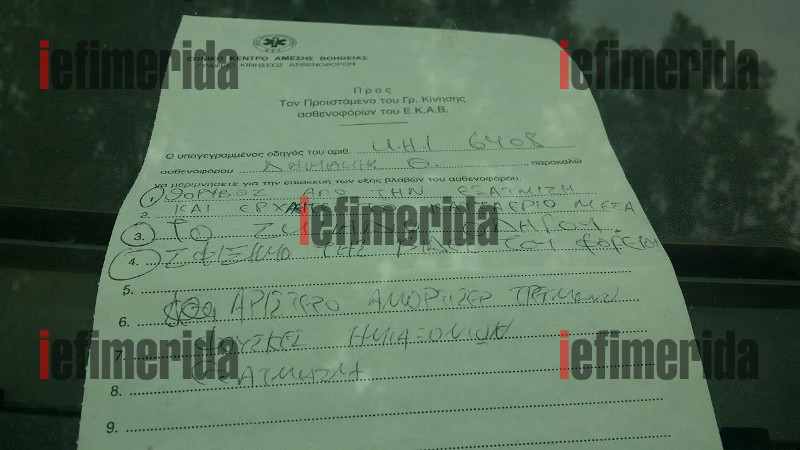 iefimerida
iefimerida
ΕΘΝΙΚΟ ΚΕΝΤΡΟ ΑΜΕΣΗΣ ΒΟΗΘΕΙΑΣ
ΓΡΑΦΕΙΟ ΚΙΝΗΣΕΩΣ ΑΣΘΕΝΟΦΟΡΩΝ
Προς
Τον Προϊστάμενο του Γρ. Κίνησης
ασθενοφόρων του Ε.Κ.Α.Β.
Ο υπογεγραμμένος οδηγός του αριθ. ΚΗΙ 6408
ασθενοφόρου Θ. , παρακαλώ
να μεριμνήσετε για την επισκευή των εξής βλαβών του ασθενοφόρου.
1. ΘΟΡΥΒΟΣ ΑΠΟ ΤΗΝ ΕΞΑΤΜΙΣΗ
2. ΚΑΙ ΕΡΧΕΤΑΙ ΜΕΣΑ
iefimerida
3. ΤΟ
4. ΣΦΙΞΙΜΟ ΤΗΣ ΤΟΥ ΦΟΡΕΙΟΥ
5.
6. ΑΡΙΣΤΕΡΟ ΑΜΟΡΤΙΣΕΡ
7. ΦΟΥΣΚΕΣ ΗΜΙΑΞΟΝΙΩΝ
iefimerida
iefimerida
8. ΕΞΑΤΜΙΣΗ
9.